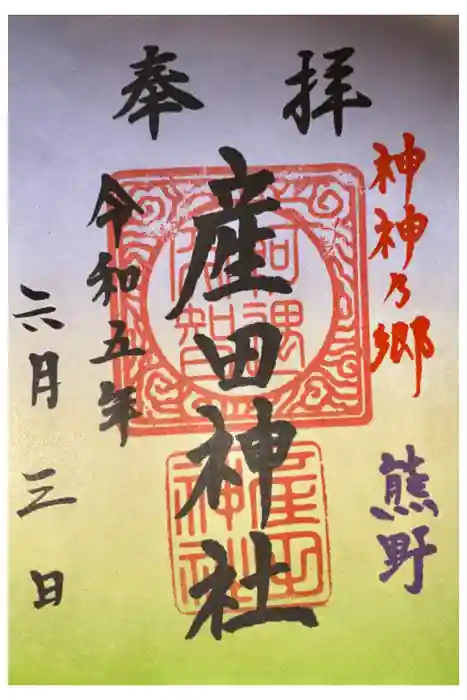 奉拝
神神乃郷
熊野
産田神社
令和五年
六月三日
産田神社